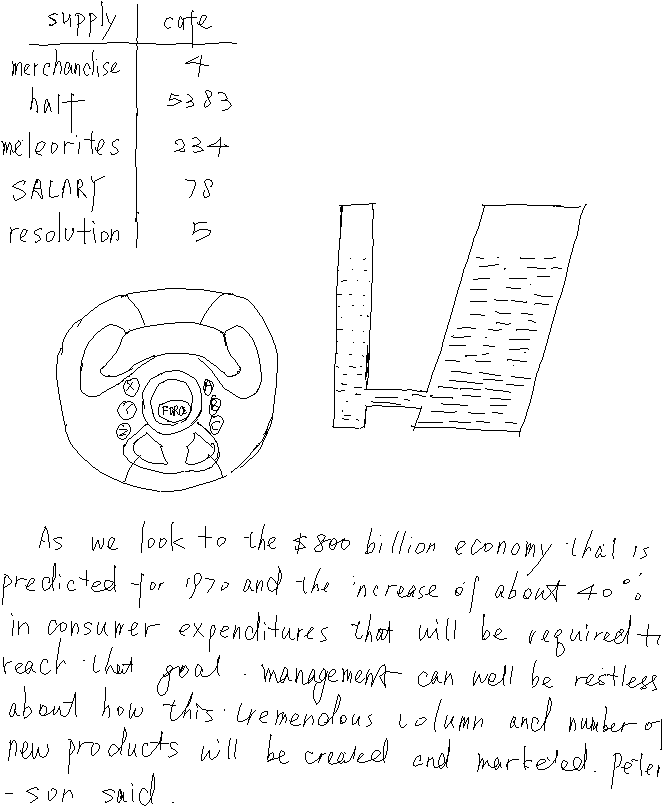 supply cafe
merchandise 4
half 5383
meteorites 234
SALARY 78
resolution 5
X A
Y B
FORCE
Z C
As we look to the $800 billion economy that is
predicted for 1970 and the increase of about 40%
in consumer expenditures that will be required to
reach that goal. management can well be restless
about how this tremendous volume and number of
new products will be created and marketed. Peter
-son said.